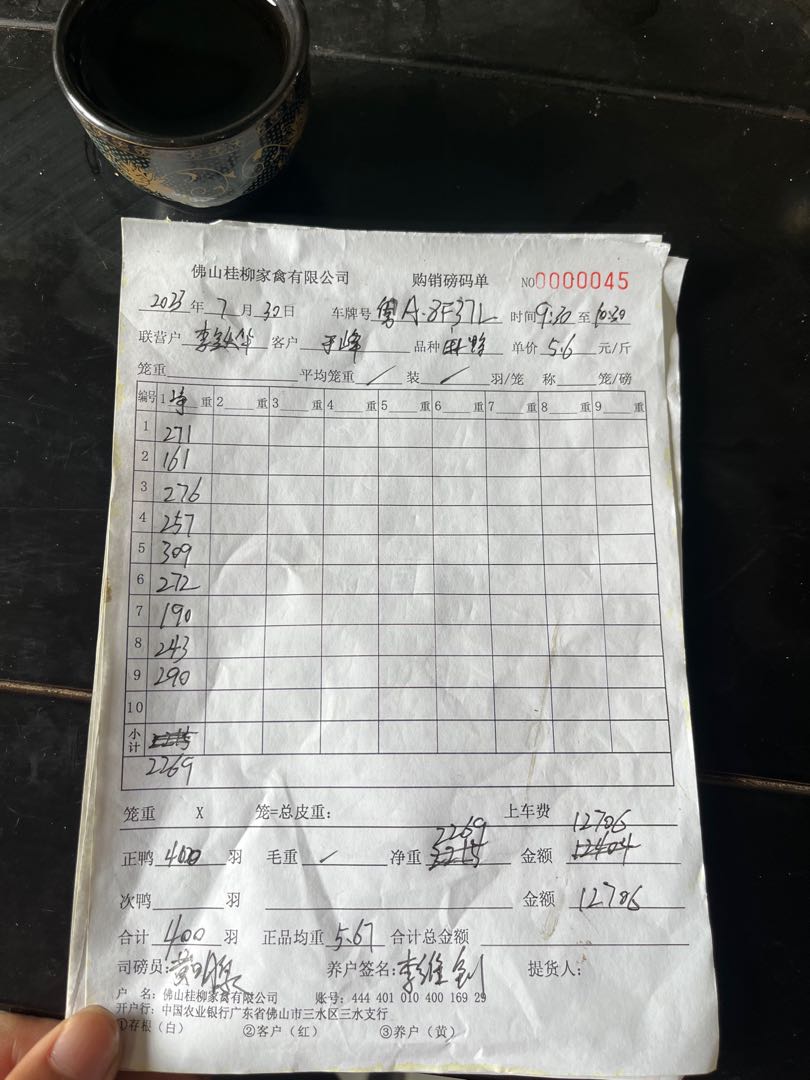 佛山桂柳家禽有限公司 购销磅码单 NO0000045
2023年7月30日 车牌号 粤A·8F37L 时间9:30至10:30
联营户 客户 于峰 品种 单价5.6元/斤
笼重 平均笼重 / 装 / 羽/笼 称 笼/磅
编号 1净重 2重 3重 4重 5重 6重 7重 8重 9重
1 271
2 161
3 276
4 257
5 309
6 272
7 190
8 243
9 290
10
小计 2215
2269
笼重 X 笼=总皮重: 上车费
2269 12706
正鸭 400 羽 毛重 / 净重 2215 金额 12404
次鸭 羽 金额 12706
合计 400 羽 正品均重 5.67 合计总金额
司磅员: 养户签名: 提货人:
户 名: 佛山桂柳家禽有限公司 账号: 444 401 010 400 169 29
开户行: 中国农业银行广东省佛山市三水区三水支行
①存根（白） ②客户（红） ③养户（黄）